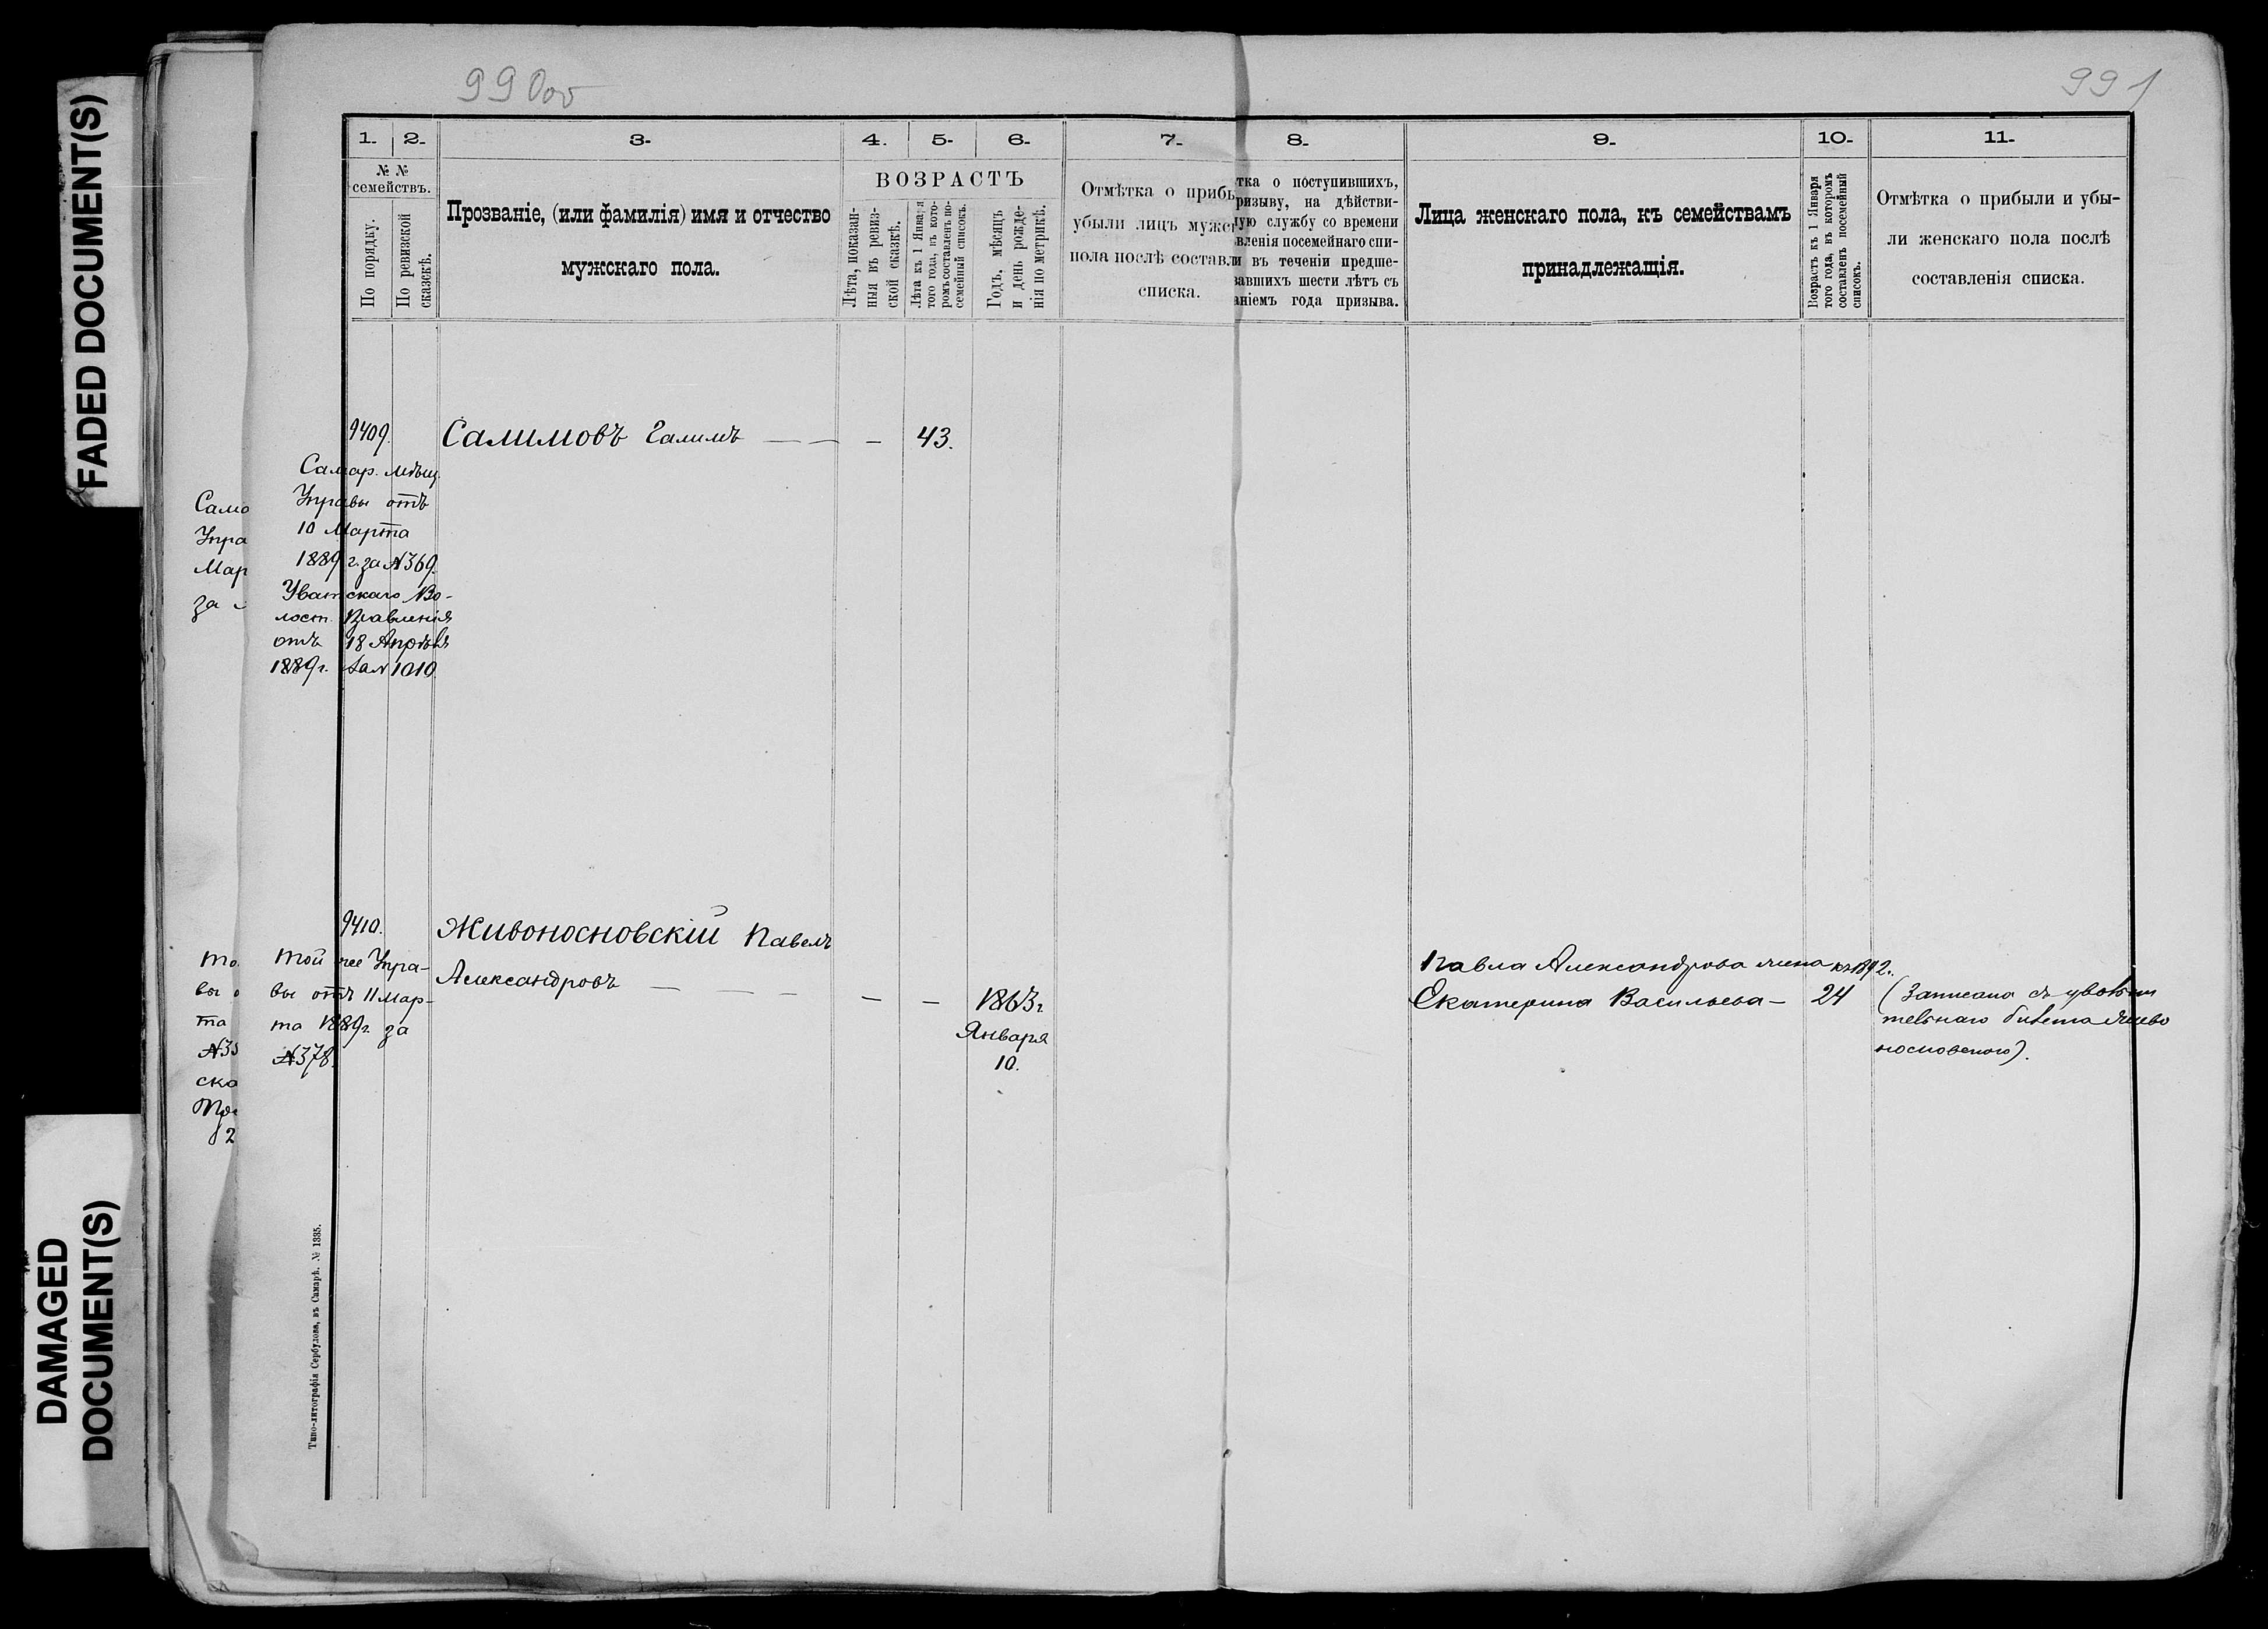 FADED DOCUMENT(S)
DAMAGED
DOCUMENT(S)
990об
991
1.
2.
3.
4.
5.
6.
7.
8.
9.
10.
11.
№ №
семействъ.
По порядку.
По ревизской
сказскѣ.
Прозваніе, (или фамилія) имя и отчество
мужскаго пола.
ВОЗРАСТЪ
Лѣта, показан-
ныя въ ревиз-
ской сказкѣ.
Лѣта къ 1 Января
того года, въ кото-
ромъ составленъ по-
семейный списокъ.
Годъ, мѣсяцъ
и день рожде-
нія по метрикѣ.
Отмѣтка о прибы
убыли лицъ мужск
пола послѣ составл
списка.
тка о поступившихъ,
ризыву, на дѣйстви-
ную службу со времени
вленія посемейнаго спи-
и въ теченіи предше-
вавшихъ шести лѣтъ съ
аніемъ года призыва.
Лица женскаго пола, къ семействамъ
принадлежащія.
Возрастъ къ 1 Января
того года, въ которомъ
составленъ посемейный
списокъ.
Отмѣтка о прибыли и убы-
ли женскаго пола послѣ
составленія списка.
9409.
Салимовъ Галимъ — — —
43.
Самар. мѣщ.
Управы отъ
10 Марта
1889 г. за №369.
Уватскаго Во-
лост. Правленія
отъ 18 Апрѣля
1889г. за № 1010.
Само
Упра
Мар
за
9410.
Живоносновскій Павелъ
Александровъ — — — — —
1863г
Января
10.
Той же Упра-
вы отъ 11 Мар-
та 1889г. за
№378.
То
вы о
та
№3
ска
Пра
2
Павла Александрова жена
къ 1892г.
Екатерина Васильева —
24
(Записана съ увольни
тельнаго билета Живо
носновского).
Типо-литографія Сербулова, въ Самарѣ. № 1335.